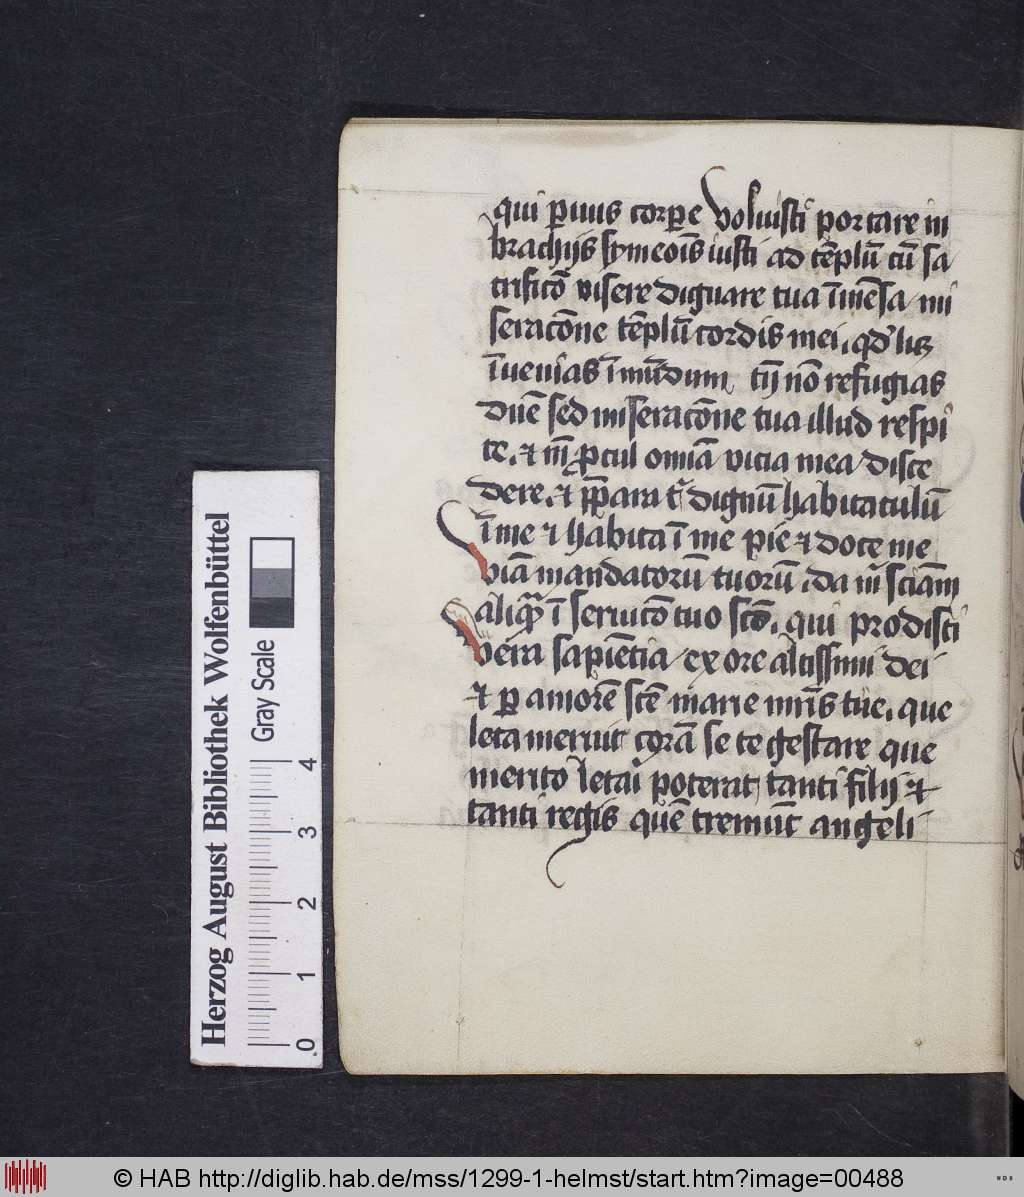 qui ꝑuus corꝑe voluisti portare in
brachijs symeōis iusti ad tēplū cū sa
crificō visere dignare tua īmēsa mi
seracōne tēplū cordis mei. qd' lic
īuenias īmūdum tn̄ nō refugias
dn̄e sed miseracōne tua illud respi
ce. ⁊ m̄ ꝓcul omīa vicia mea disce
dere. ⁊ p̄para t' dignū habitaculū
ī me ⁊ habita ī me pie ⁊ doce me
viā mandatorū tuorū. da m̄ sciām
ī seruicō tuo scō. qui prodisti
vera sapiētia ex ore altissimi dei
⁊ ꝑ amorē scē marie mr̄is tue. que
leta meruit corā se te gestare que
merito letai poterat tanti filij ⁊
tanti regis quē tremūt angeli
Herzog August Bibliothek Wolfenbüttel
Gray Scale
0 1 2 3 4
© HAB http://diglib.hab.de/mss/1299-1-helmst/start.htm?image=00488